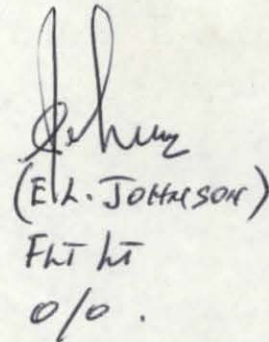 (E.L. JOHNSON)
FLT LT
O/O.